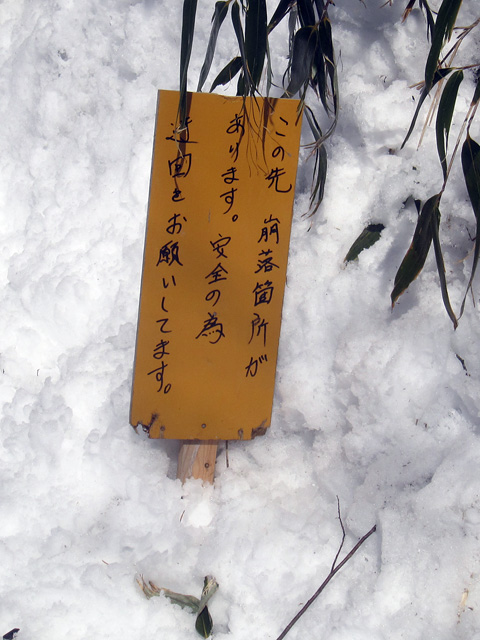 この先 崩落箇所が
あります。安全の為
迂回をお願いしてます。